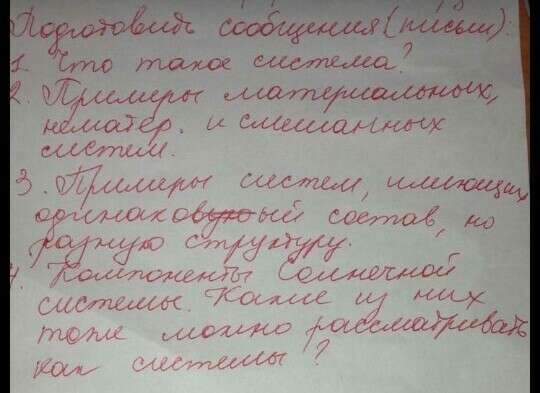 Подготовить сообщения (письм):
1. Что такое система?
2. Примеры материальных,
нематер. и смешанных
систем.
3. Примеры систем, имеющих
одинаковый состав, но
разную структуру.
4. Компоненты Солнечной
системы. Какие из них
тоже можно рассматривать
как системы?